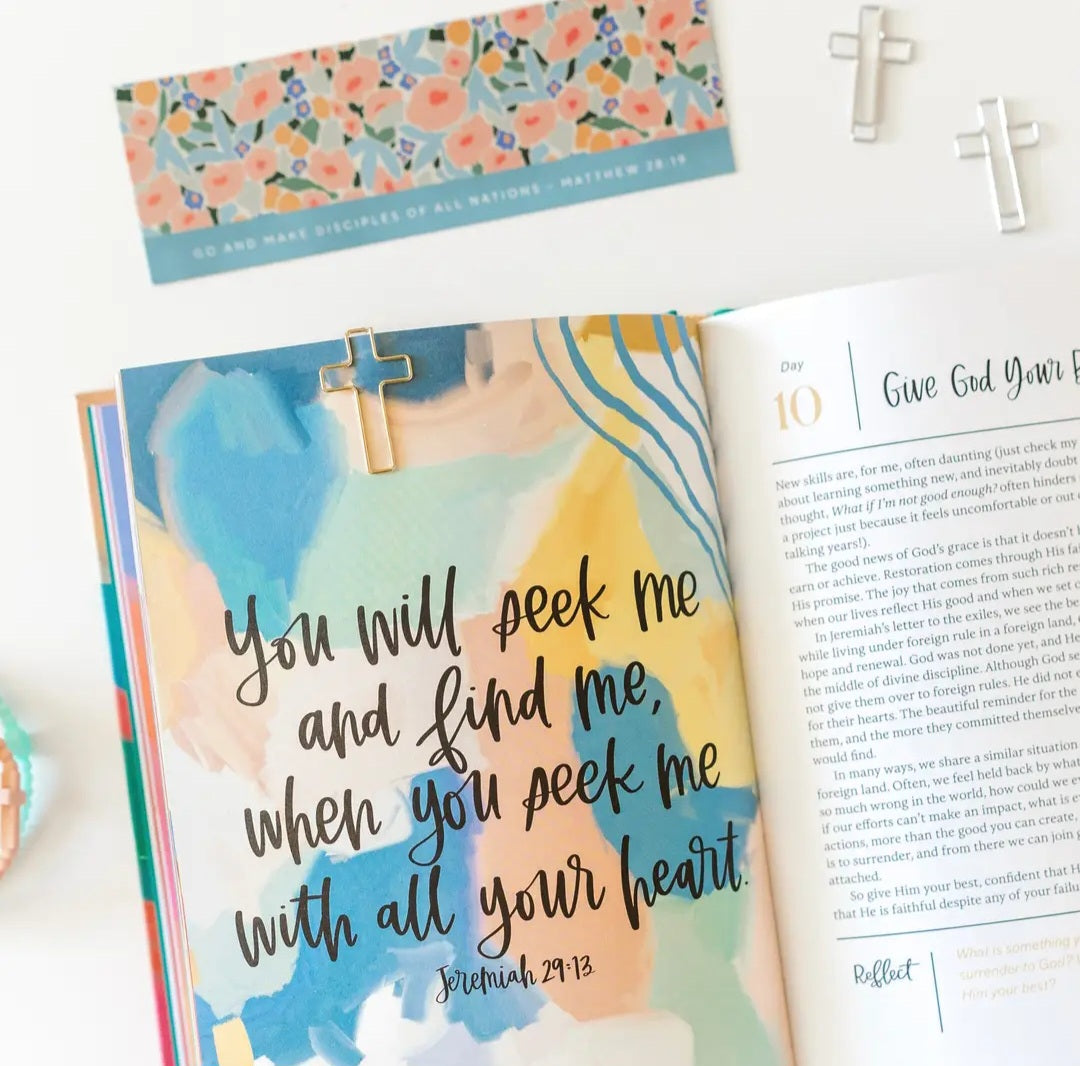 GO AND MAKE DISCIPLES OF ALL NATIONS - MATTHEW 28:19
You will seek me
and find me,
when you seek me
with all your heart.
Jeremiah 29:13
Day
10
Give God Your
New skills are, for me, often daunting (just check my
about learning something new, and inevitably doubt
thought, What if I'm not good enough? often hinders
a project just because it feels uncomfortable or out
talking years!).
The good news of God's grace is that it doesn't
earn or achieve. Restoration comes through His
His promise. The joy that comes from such rich
when our lives reflect His good and when we set
In Jeremiah's letter to the exiles, we see the
while living under foreign rule in a foreign land,
hope and renewal. God was not done yet, and
the middle of divine discipline. Although God
not give them over to foreign rules. He did not
for their hearts. The beautiful reminder for the
them, and the more they committed themselve
would find.
In many ways, we share a similar situation
foreign land. Often, we feel held back by what
so much wrong in the world, how could we
if our efforts can't make an impact, what is
actions, more than the good you can create,
is to surrender, and from there we can join
attached.
So give Him your best, confident that
that He is faithful despite any of your
Reflect
What is something
surrender to God?
Him your best?